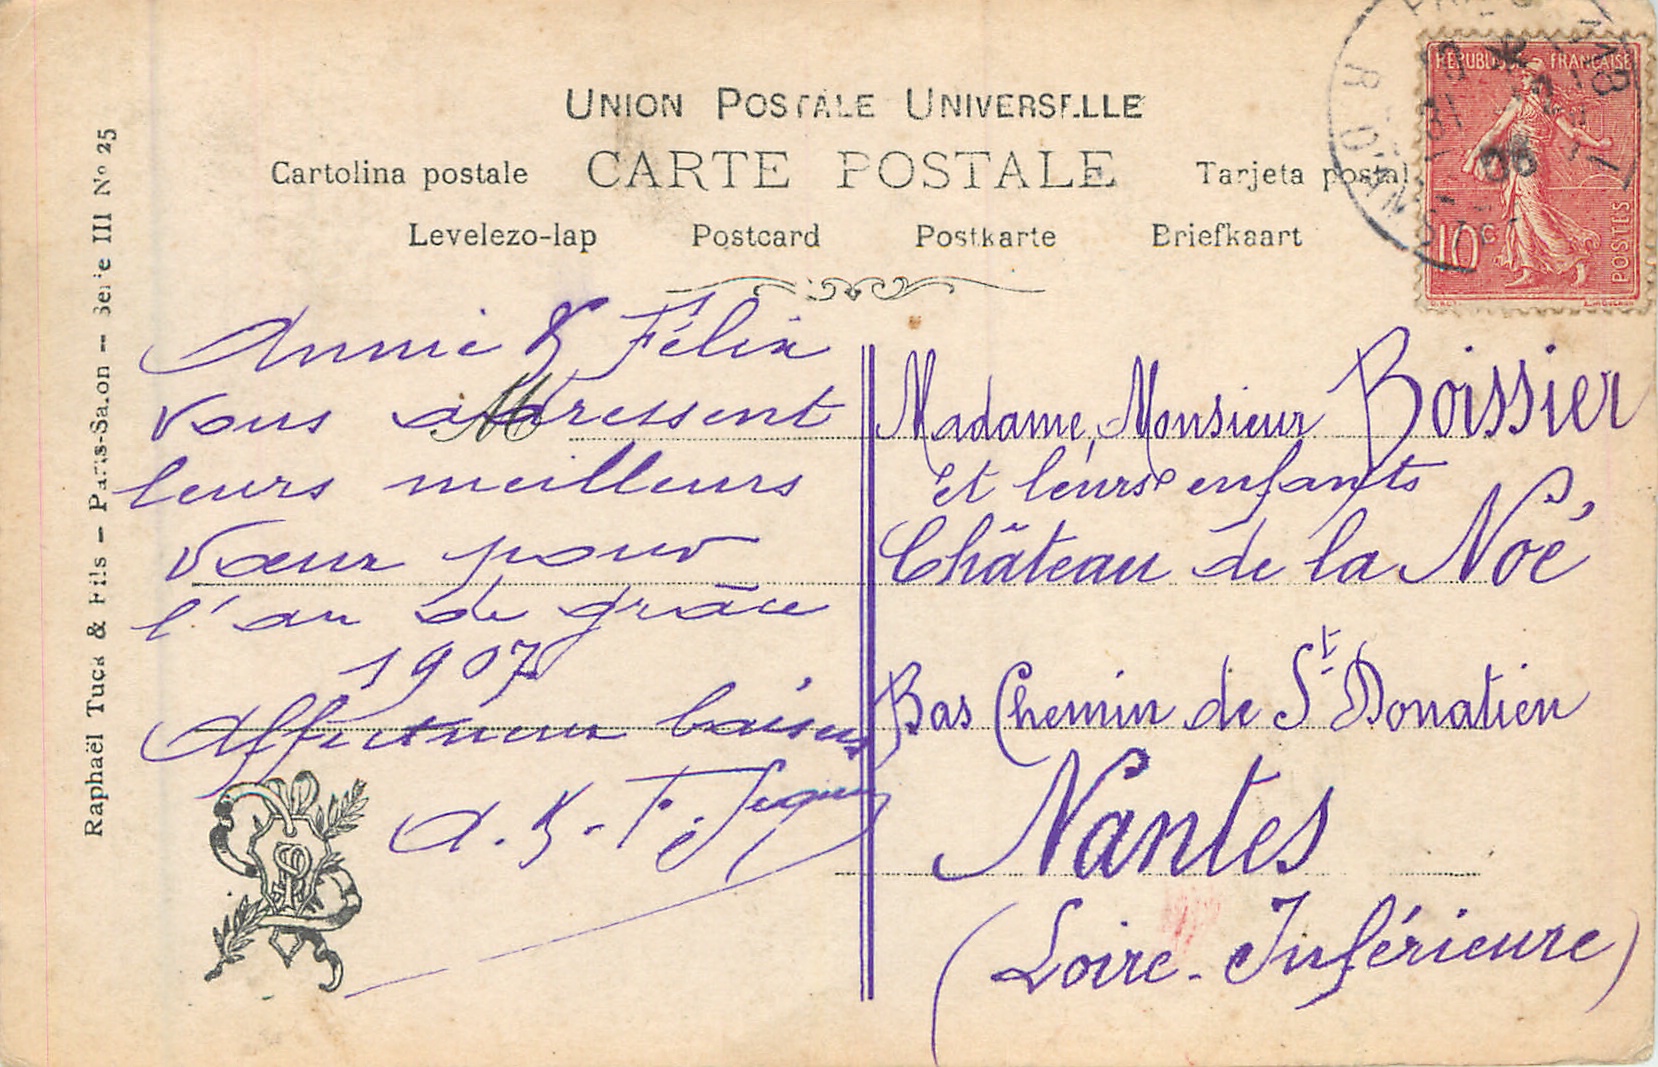 UNION POSTALE UNIVERSELLE
Cartolina postale CARTE POSTALE Tarjeta postal
Levelezo-lap Postcard Postkarte Briefkaart
Raphaël Tuck & Fils — Paris-Salon — Série III Nº 25
REPUBLIQUE FRANÇAISE
10 c
POSTES
06
M
Annie & Félix
vous adressent
leurs meilleurs
vœux pour
l'an de grâce
1907
Affectueux baisers
A. & F.
Madame, Monsieur Boissier
et leurs enfants
Château de la Noé
Bas Chemin de St Donatien
Nantes
(Loire-Inférieure)